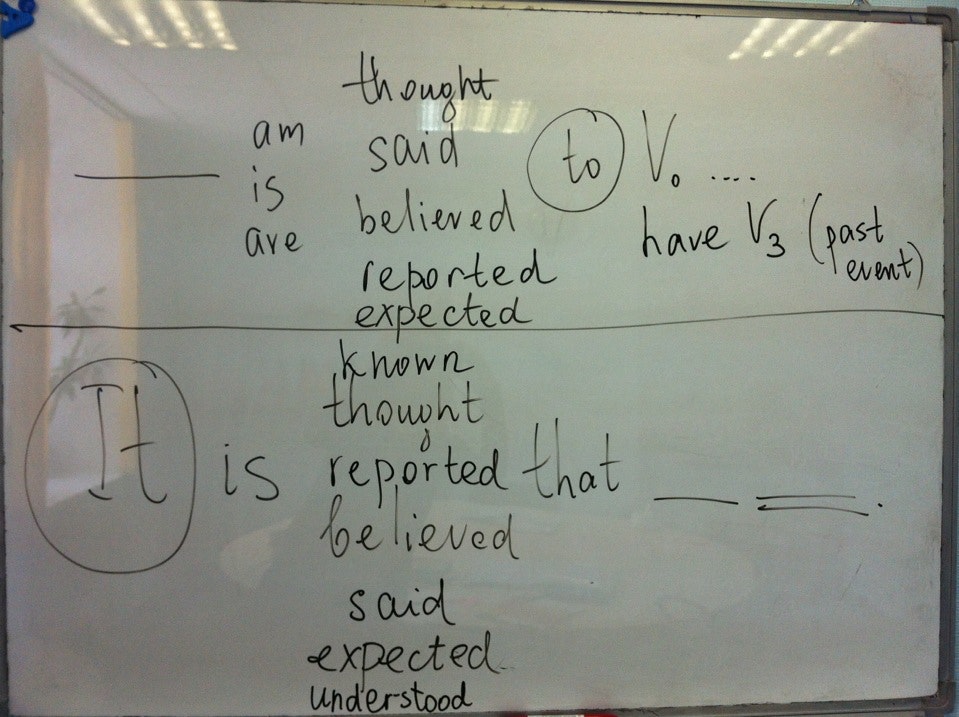 thought
am said to V0 ....
is believed have V3 (past event)
are reported
expected
known
thought
It is reported that
believed
said
expected
understood